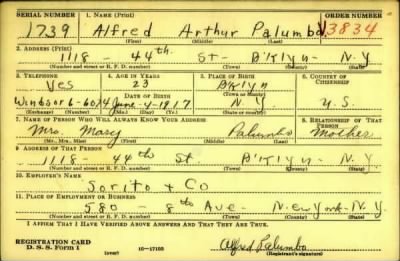 SERIAL NUMBER 1. NAME (Print) ORDER NUMBER
1739 Alfred Arthur Palumbo 13834
(First) (Middle) (Last)
2. ADDRESS (Print)
1118 - 44th St - B'Klyn - N.Y
(Number and street or R. F. D. number) (Town) (County) (State)
3. TELEPHONE 4. AGE IN YEARS 5. PLACE OF BIRTH 6. COUNTRY OF CITIZENSHIP
Yes 23 B'Klyn
DATE OF BIRTH (Town or county)
Windsor 6-6074 June - 4 - 1917 N.Y U.S.
(Exchange) (Number) (Mo.) (Day) (Yr.) (State or country)
7. NAME OF PERSON WHO WILL ALWAYS KNOW YOUR ADDRESS 8. RELATIONSHIP OF THAT PERSON
Mrs. Mary Palumbo Mother
(Mr., Mrs., Miss) (First) (Middle) (Last)
9. ADDRESS OF THAT PERSON
1118 - 44th St. B'Klyn - N.Y.
(Number and street or R. F. D. number) (Town) (County) (State)
10. EMPLOYER'S NAME
Sorito + Co
11. PLACE OF EMPLOYMENT OR BUSINESS
580 - 8th Ave - New York - N.Y.
(Number and street or R. F. D. number) (Town) (County) (State)
I AFFIRM THAT I HAVE VERIFIED ABOVE ANSWERS AND THAT THEY ARE TRUE.
REGISTRATION CARD
D. S. S. Form 1 (over) 16-17105 Alfred Palumbo
(Registrant's signature)